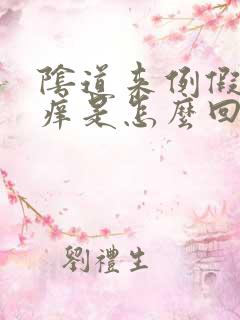 陰道来例假
痒是怎麼回
劉禮生